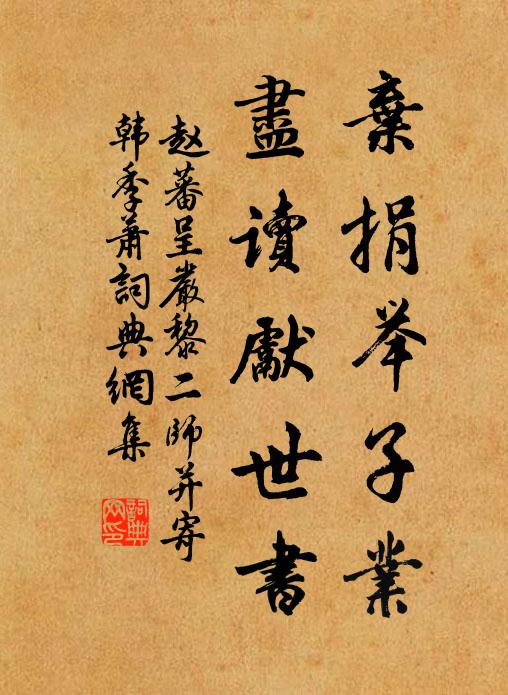 棄捐举子業
盡讀獻世書
赵蕃呈嚴黎二師并寄
韩季蕭詞典網集
詞典網印